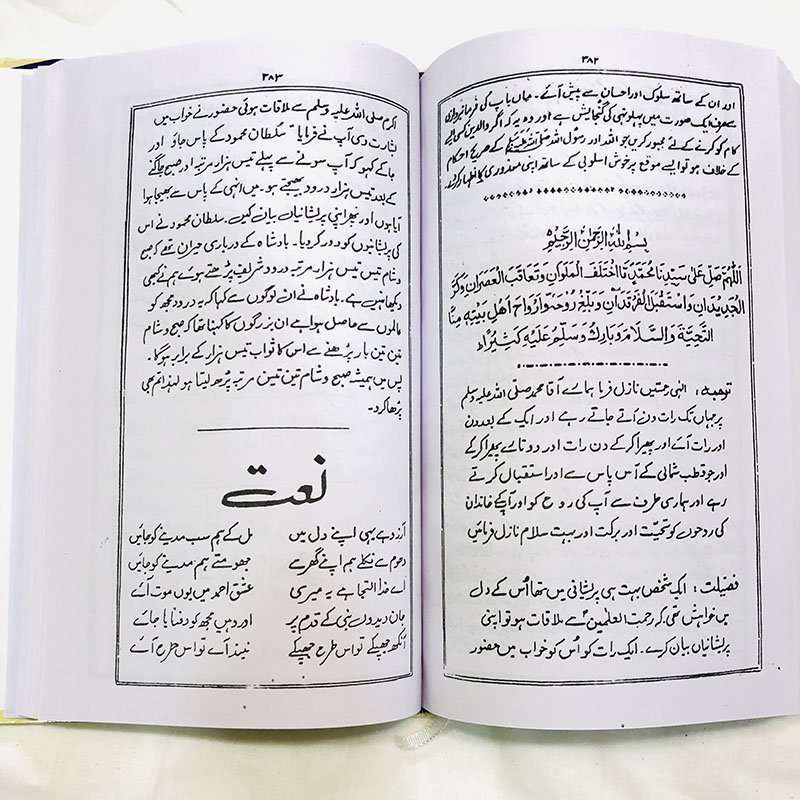 ۳۸۲
اور ان کے ساتھ سلوک اور احسان سے پیش آئے۔ ماں باپ کی فرمانبرداری
سے صرف ایک صورت میں پہلو تہی کی گنجایش ہے اور وہ یہ کہ اگر والدین کسی ایسے
کام کو کرنے کے لئے مجبور کریں جو اللہ اور رسول اللہ صلی اللہ علیہ وسلم کے صریح احکام
کے خلاف ہو تو ایسے موقع پر خوش اسلوبی کے ساتھ اپنی معذوری کا اظہار کر دے
بِسْمِ اللّٰهِ الرَّحْمٰنِ الرَّحِيْمِ
اَللّٰهُمَّ صَلِّ عَلٰى سَيِّدِنَا مُحَمَّدٍ مَّا اخْتَلَفَ الْمَلَوَانِ وَتَعَاقَبَ الْعَصْرَانِ وَكَرَّ
الْجَدِيْدَانِ وَاسْتَقْبَلَ الْفَرْقَدَانِ وَبَلِّغْ رُوْحَهٗ وَاَرْوَاحَ اَهْلِ بَيْتِهٖ مِنَّا
التَّحِيَّةَ وَالسَّلَامَ وَبَارِكْ وَسَلِّمْ عَلَيْهِ كَثِيْرًا
ترجمہ: الٰہی رحمتیں نازل فرما ہمارے آقا محمد صلی اللہ علیہ وسلم
پر جہاں تک رات دن آتے جاتے رہے اور ایک کے بعد دن
اور رات آئے اور پھیرا کر کے دن رات اور دو تارے پھیرا کر کے
اور جو قطب شمالی کے آس پاس سے اور استقبال کرتے
رہے اور ہماری طرف سے آپ کی روح کو اور آپکے خاندان
کی روحوں کو تحیّت اور برکت اور بہت سلام نازل فرمائیں
فضیلت: ایک شخص بہت ہی پریشانی میں تھا اُس کے دل
میں خواہش تھی کہ رحمت العلمین سے ملاقات ہو تو اپنی
پریشانیاں بیان کرے۔ ایک رات کو اُس کو خواب میں حضور
۳۸۳
اکرم صلی اللہ علیہ وسلم سے ملاقات ہوئی حضور نے خواب میں
بشارت دی آپ نے فرمایا سلطان محمود کے پاس جاؤ اور
جا کے کہو کہ آپ سونے سے پہلے تیس ہزار مرتبہ اور صبح جاگنے
کے بعد تیس ہزار درود بھیجتے ہو۔ میں انہی کے پاس سے بھیجا ہوا
آیا ہوں اور پھر اپنی پریشانیاں بیان کیں۔ سلطان محمود نے اس
کی پریشانیوں کو دور کر دیا۔ بادشاہ کے درباری حیران تھے کہ صبح
و شام تیس تیس ہزار مرتبہ درود شریف پڑھتے ہوئے ہم نے کبھی
دیکھا نہیں ہے۔ بادشاہ نے ان لوگوں سے کہا کہ یہ درود مجھ کو
عالموں سے حاصل ہوا ہے ان بزرگوں کا کہنا تھا کہ صبح و شام
تین تین بار پڑھنے سے اس کا ثواب تیس ہزار کے برابر ہوگا۔
پس میں ہمیشہ صبح و شام تین تین مرتبہ پڑھ لیتا ہو لہذا تم بھی
پڑھا کرو۔
نعت
آرزو ہے یہی اپنے دل میں مل کے ہم سب مدینے کو جائیں
دھوم سے نکلے ہم اپنے گھر سے جھومتے ہم مدینے کو جائیں
اے خدا التجا ہے یہ میری عشق احمد میں یوں موت آئے
جان دیدوں نبی کے قدم پر اور وہیں مجھ کو دفنایا جائے
آنکھ جھپکے تو اس طرح جھپکے نیند آئے تو اس طرح آئے